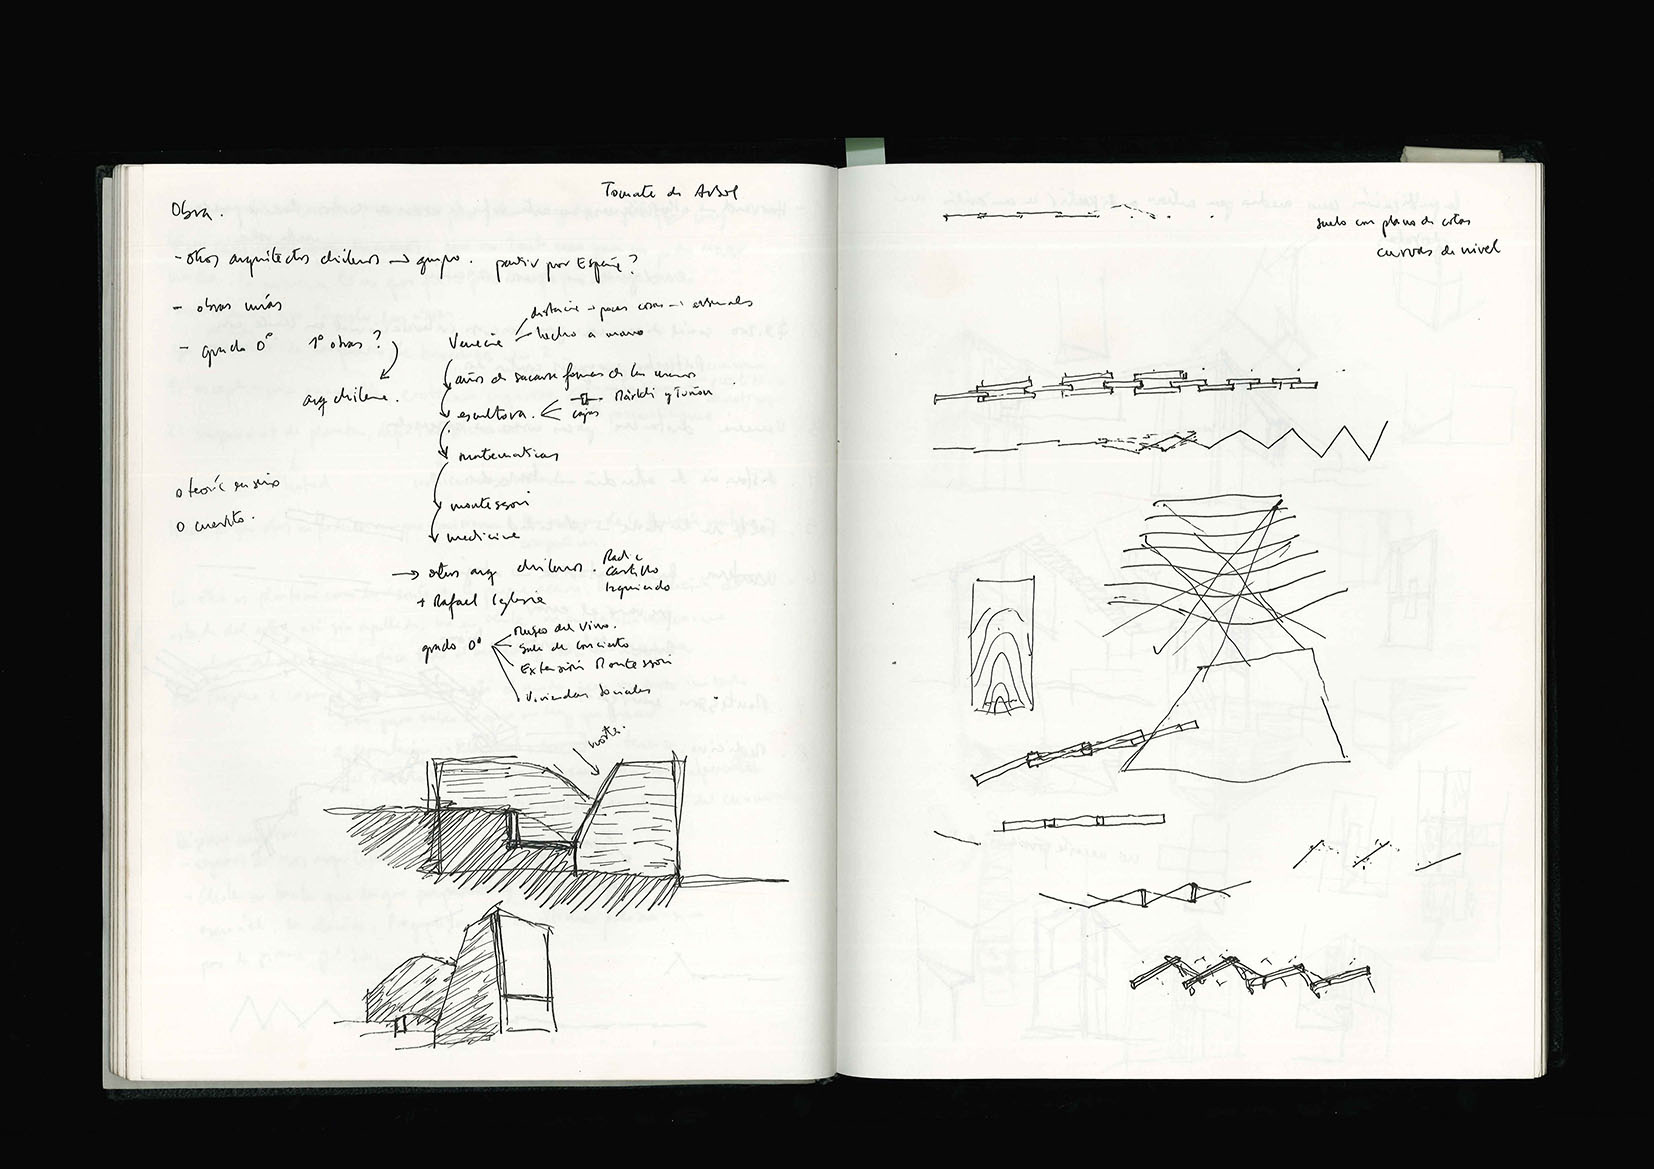 Tomate de Arbol
Obra.
- otros arquitectos chilenos → grupo. partir por España?
- obras mías
- grado 0° 1° obras?
arq chilena.
o teoría ensino
o cuento.
Venecia
distancia → pocas cosas → esenciales
hecho a mano
años de sacarse formas de las manos
escultora.
Mansilla y Tuñon
cajas
matematicas
montessori
medicina
→ otros arq chilenos.
Radic
Castillo
Izquierdo
+ Rafael Iglesia
grado 0°
Museo del Vino.
Sala de Concierto
Extensión Montessori
Viviendas Sociales
norte.
suelo con plano de cotas
curvas de nivel